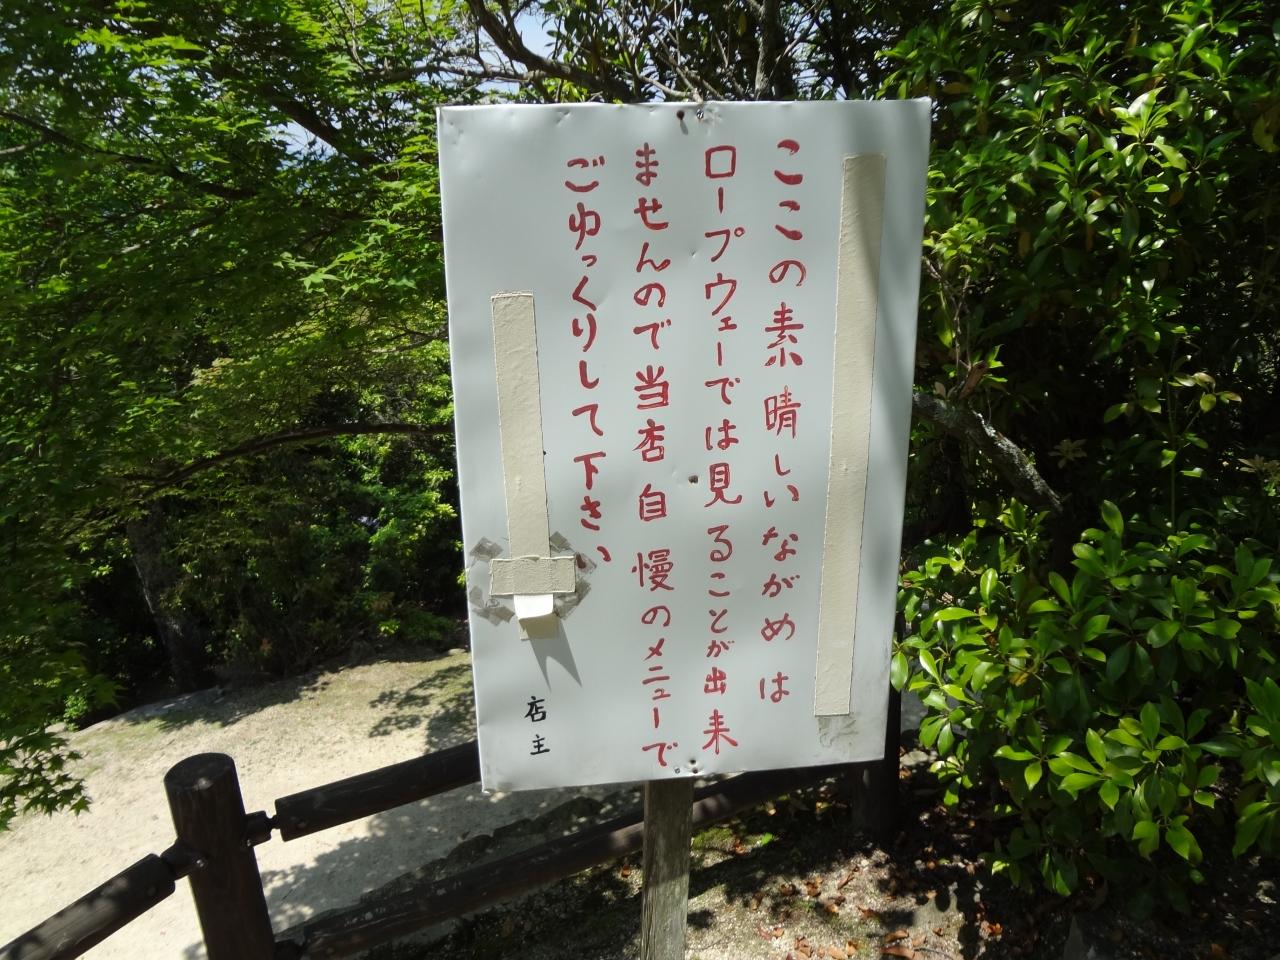 ここの素晴しいながめは
ロープウェーでは見ることが出来
ませんので当店自慢のメニューで
ごゆっくりして下さい
店主